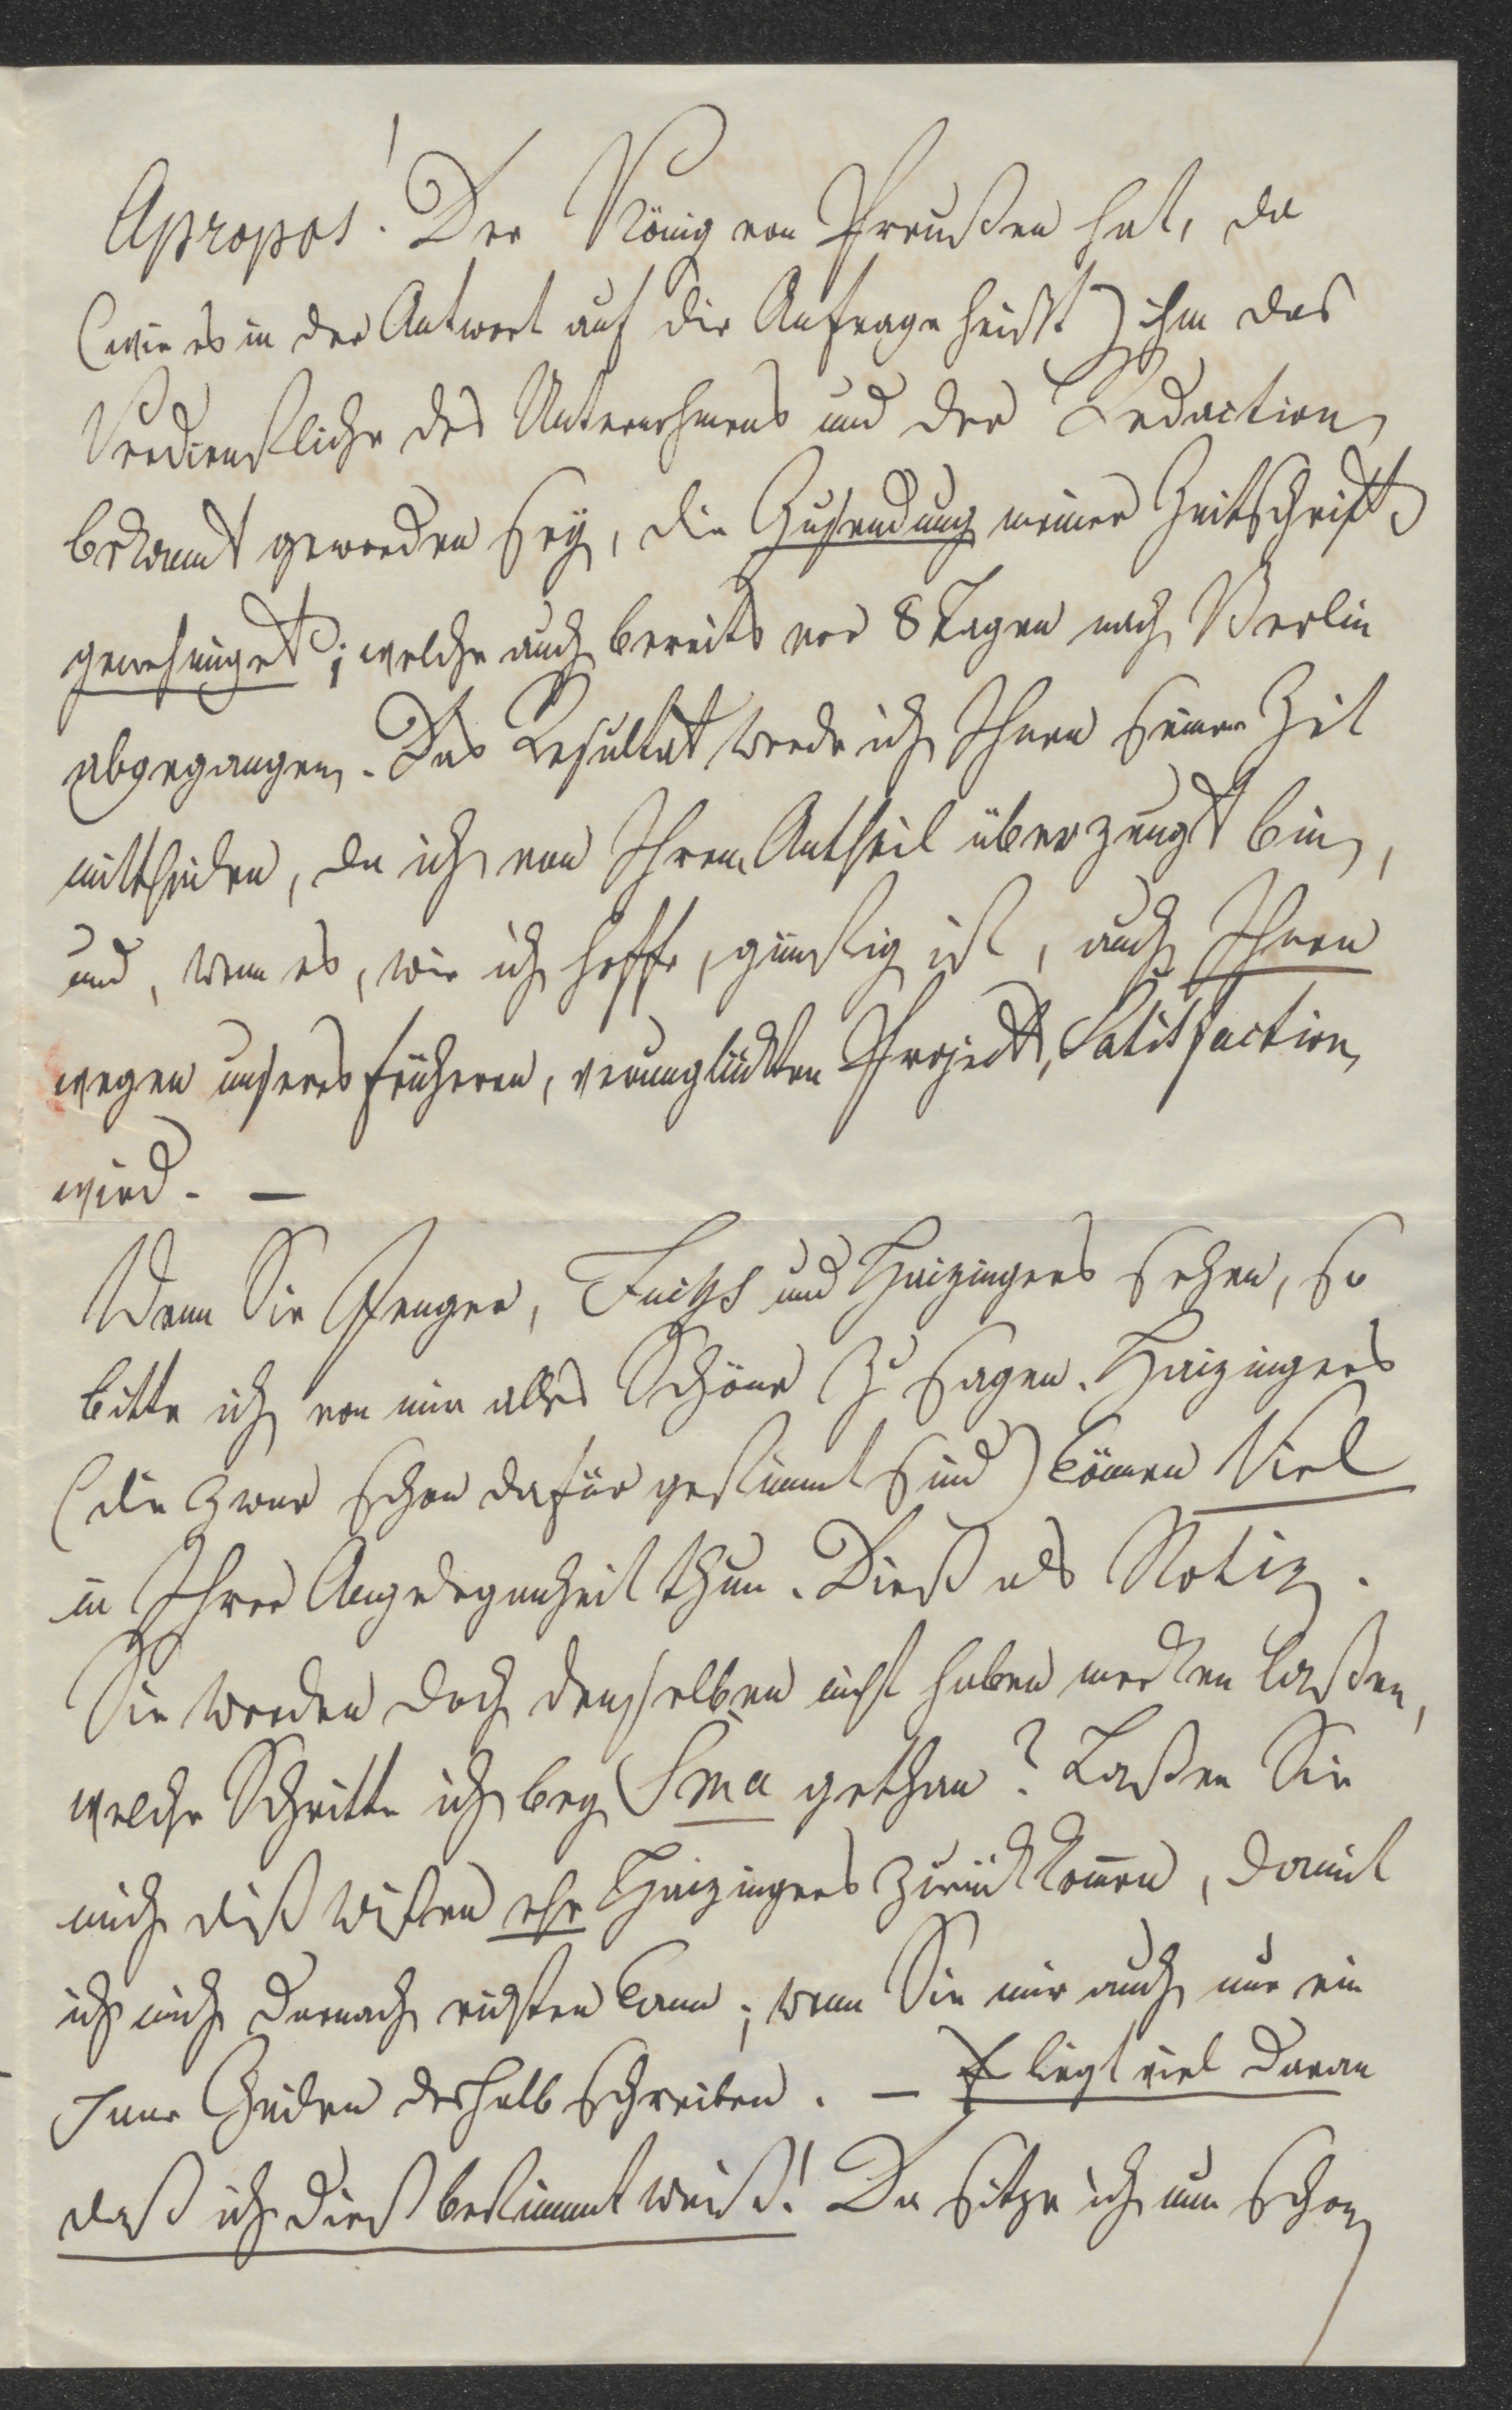 Apropos! Der König von Preußen hat, da
(wie es in der Antwort auf die Anfrage heißt) ihm das
Verdienstliche des Unternehmens und der Redaction
bekannt geworden sey, die Zusendung meiner Zeitschrift
genehmiget; welche auch bereits vor 8 Tagen nach Berlin
abgegangen. Das Resultat werde ich Ihnen seiner Zeit
mittheilen, da ich von Ihrem Antheil überzeugt bin,
und, wenn es, wie ich hoffe, günstig ist, auch Ihnen
wegen unseres früheren, verunglückten Projekts, Satisfaction
wird. —
Wenn Sie Fuchs und Haizingers sehen, so
bitte ich von mir alles Schöne zu sagen. Haizingers
(die zwar schon dafür gestimmt sind) können Viel
in Ihrer Angelegenheit thun. Dieß als Notiz.
Sie werden doch denselben nicht haben merken laßen,
welche Schritte ich bey gethan? Laßen Sie
mich dieß wißen ehe Haizingers zurückkom̅en, damit
ich mich darnach richten kann; wenn Sie mir auch nur ein
Paar Zeilen deshalb schreiben. — Es liegt viel daran
daß ich dieß bestimmt weiß! Da sitze ich nun schon